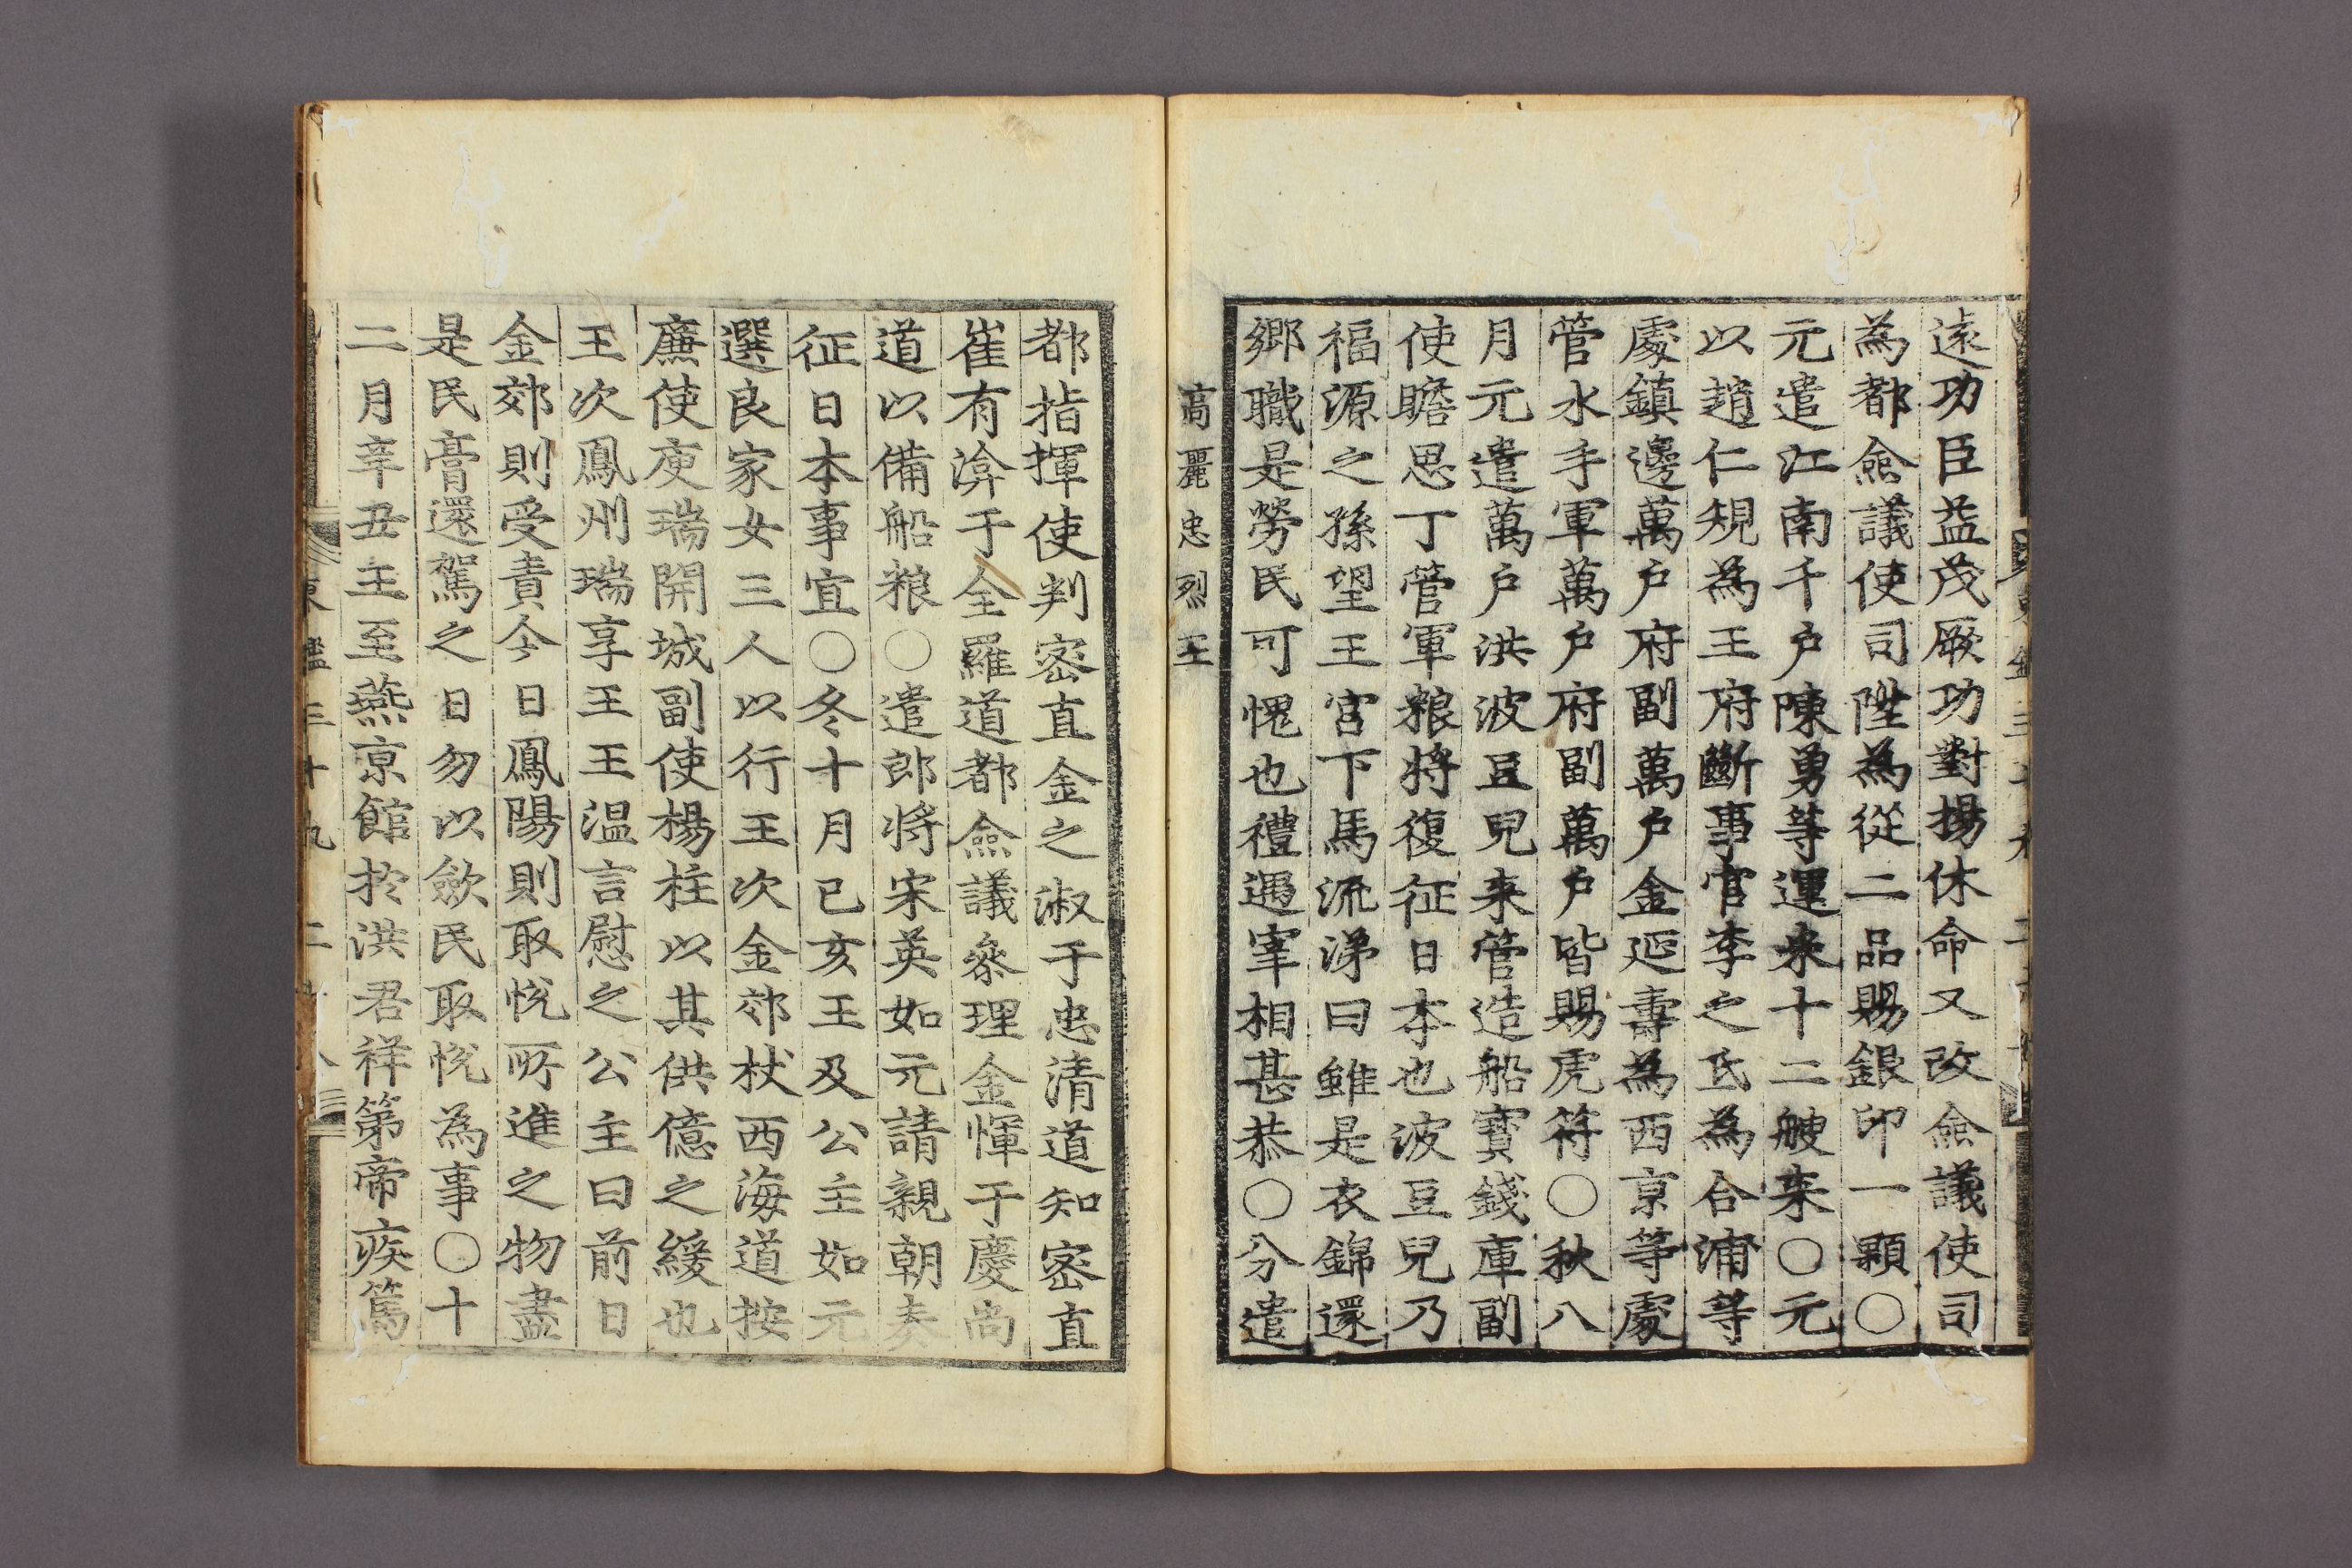 遠功臣益茂厥功對揚休命又改僉議使司
為都僉議使司陞為從二品賜銀印一顆○
元遣江南千户陳勇等運来十二艘来○元
以趙仁規為王府斷事官李之氐為合浦等
處鎮邊萬户府副萬户金延壽為西京等處
管水手軍萬户府副萬户皆賜虎符○秋八
月元遣萬户洪波豆兒来管造船寳錢庫副
使瞻思丁管軍粮將復征日本也波豆兒乃
福源之孫望王宮下馬流涕曰雖是衣錦還
郷職是勞民可愧也禮遇宰相甚恭○分遣
高麗忠烈王
都指揮使判密直金之淑于忠清道知密直
崔有渰于全羅道都僉議叅理金惲于慶尚
道以備船粮○遣郎將宋英如元請親朝奏
征日本事宜○冬十月已亥王及公主如元
選良家女三人以行王次金郊杖西海道按
廉使庾瑞開城副使楊柱以其供億之緩也
王次鳳州瑞享王王温言慰之公主曰前日
金郊則受責今日鳳陽則取悅所進之物盡
是民膏還駕之日勿以歛民取悅為事○十
二月辛丑王至燕京館於洪君祥第帝疾篤
東鑑三十九